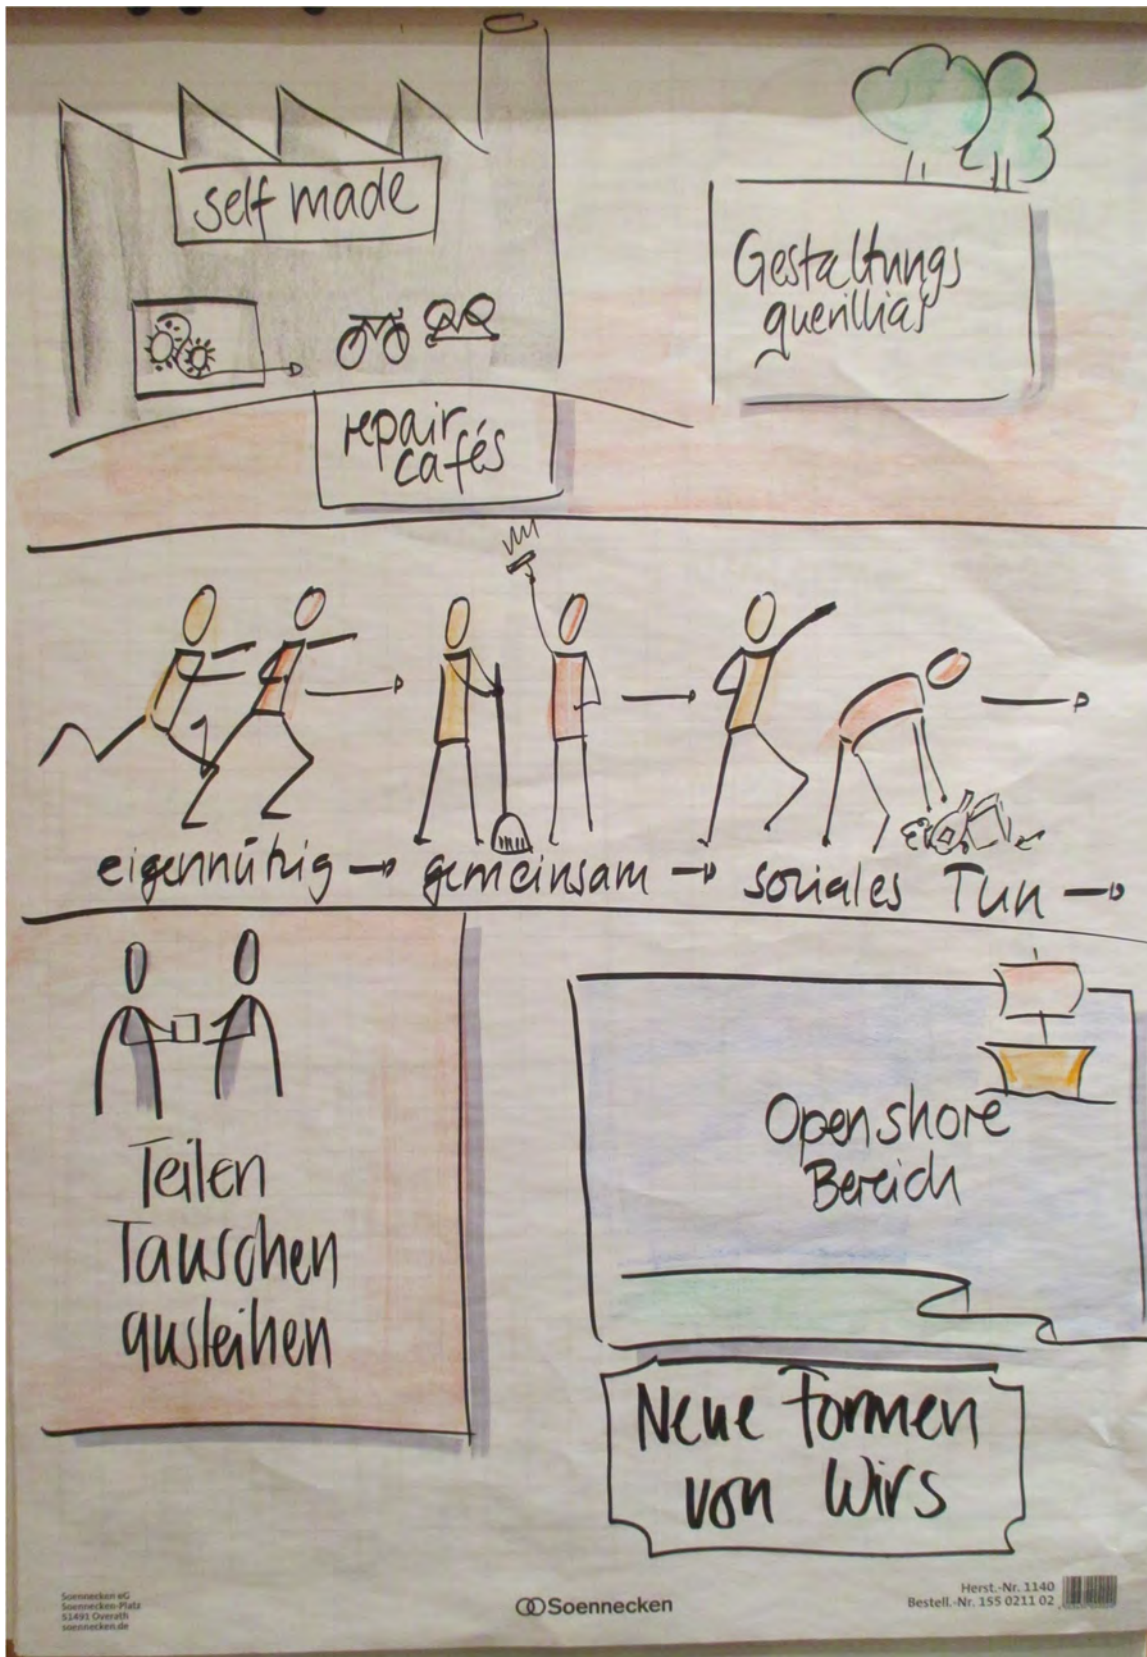 self made
Gestaltungs
guerillias
repair
cafés
eigennützig → gemeinsam → soziales Tun →
Teilen
Tauschen
ausleihen
Openshore
Bereich
Neue Formen
von Wirs
Soennecken eG
Soennecken-Platz
51491 Overath
soennecken.de
Soennecken
Herst.-Nr. 1140
Bestell.-Nr. 155 0211 02